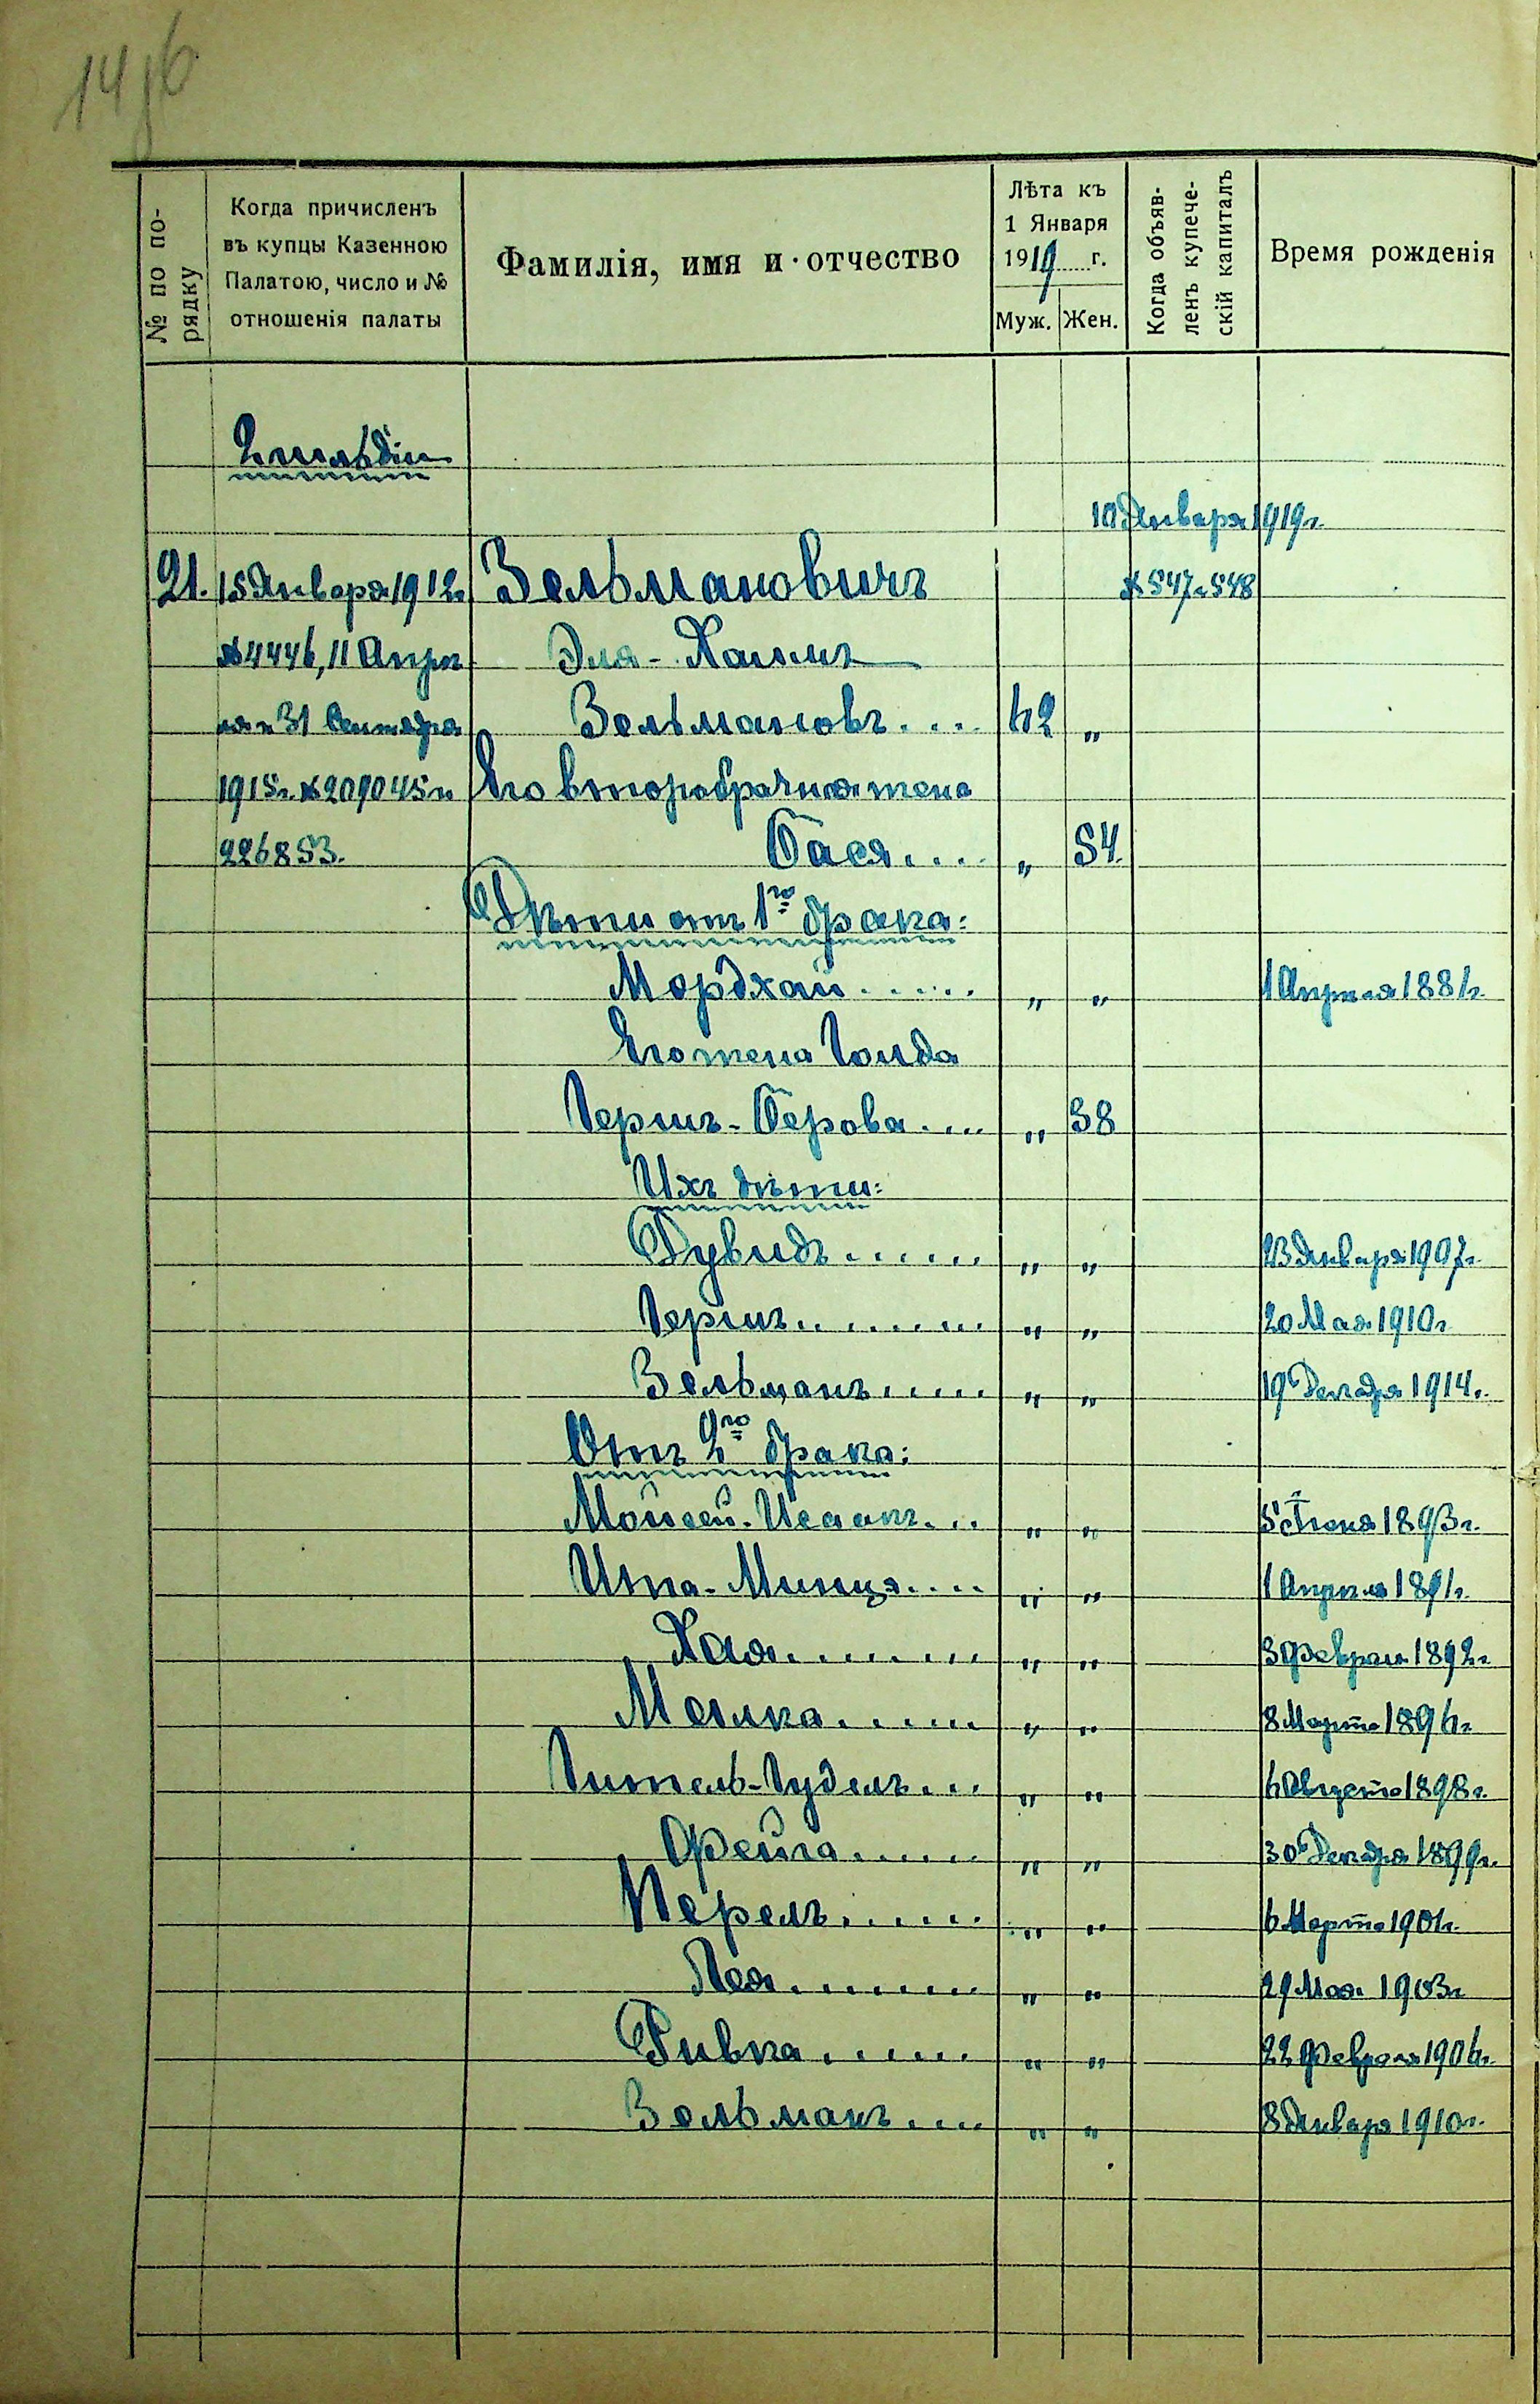 № по порядку
Когда причисленъ
въ купцы Казенною
Палатою, число и №
отношенія палаты
Фамилія, имя и отчество
Лѣта къ
1 Января
1919 г.
Муж. Жен.
Когда объяв-
ленъ купече-
скій капиталъ
Время рожденія
2 гильдіи
10 Января 1919 г.
21. 15 Января 1912 г. Зельмановичъ № 547 и 548
№ 4446, 11 Апрѣ Эля-Хаимъ
ля и 31 Сентября Зельмановъ.... 62 "
1915 г. № 209045 и Его второбрачная жена
226853. Бася.... " 54.
Дѣти отъ 1го брака:
Мордхай...... " " 1 Апрѣля 1881 г.
Его жена Голда
Гершъ-Берова.... " 38
Ихъ дѣти:
Дувидъ...... " " 23 Января 1907 г.
Гершъ........ " " 20 Мая 1910 г.
Зельманъ..... " " 19 Декабря 1914 г.
Отъ 2го брака:
Мойсей-Исаакъ... " " 5 Іюня 1893 г.
Ита-Минця.... " " 1 Апрѣля 1891 г.
Хая........ " " 3 Февраля 1892 г.
Малка...... " " 8 Марта 1896 г.
Гитель-Гудель... " " 6 Августа 1898 г.
Фейга...... " " 30 Декабря 1899 г.
Перель...... " " 6 Марта 1901 г.
Лея........ " " 29 Мая 1903 г.
Ривка...... " " 22 Февраля 1906 г.
Зельманъ.... " " 8 Января 1910 г.